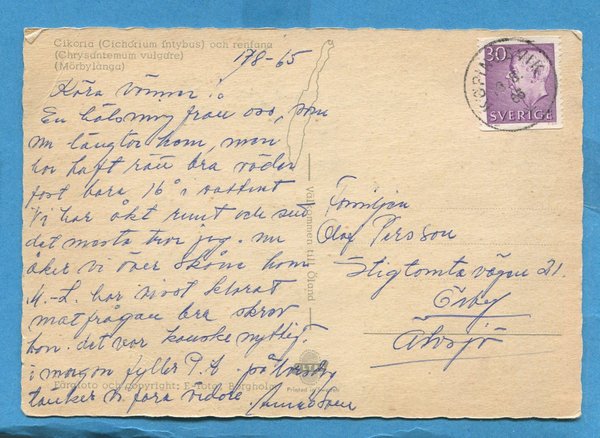 Cikoria (Cichorium intybus) och renfana
(Chrysantemum vulgare)
(Mörbylånga)
17/8-65
Kära vänner i Ö
En hälsning från oss, som
nu längtar hem, men
har haft rätt bra väder
fast bara 16° i vattnet
Vi har åkt runt och sett
det mesta tror jag. nu
åker vi över Skåne hem
M.-L. har visst klarat
matfrågan bra skrev
hon. det var kanske nyttigt.
i morgon fyller P.
tänker vi fara vidare.
Färgfoto och copyright: E-foto, Borgholm
Välkommen till Öland
Printed in
30
SVERIGE
Familjen
Olof Persson
Stigtomta vägen 21.
Örby
Älvsjö